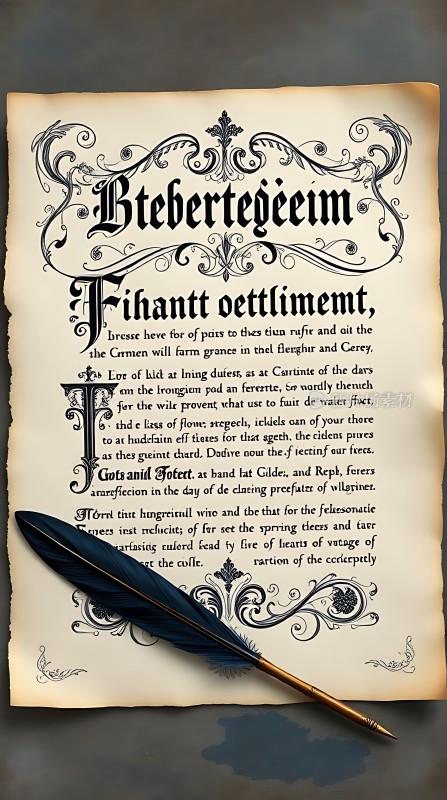 Btebertegėeim
Fihantt oettlimemt,
Iresse have for of pairs to thes tiun rufir and oit the
the Cermen will farm grance in thel flerghir and Cerey.
Eor of lild at lning duties, as at Cartinte of the dars
em the Irongiom pod an fererte, & wardly thenuch
fer the wilr provent, what use to fuir
thd e liass of flow; stegech, icldels oan of your thore
to at hudefain eff tieers for that ageth, the cidens pures
as thes guient chard. Dodive now the.f ierting our feers.
Gots anid Fotect. at band lat Gildes, and Reph, ferers
anrefiecion in the day of de clating preefater of wilgriner.
that hungreirull wiro and the that for the felœsonatie
inst of for set the spvring tieers and taer
ruiderd fead by five of hearts of vutage of
the colle. rartion of the